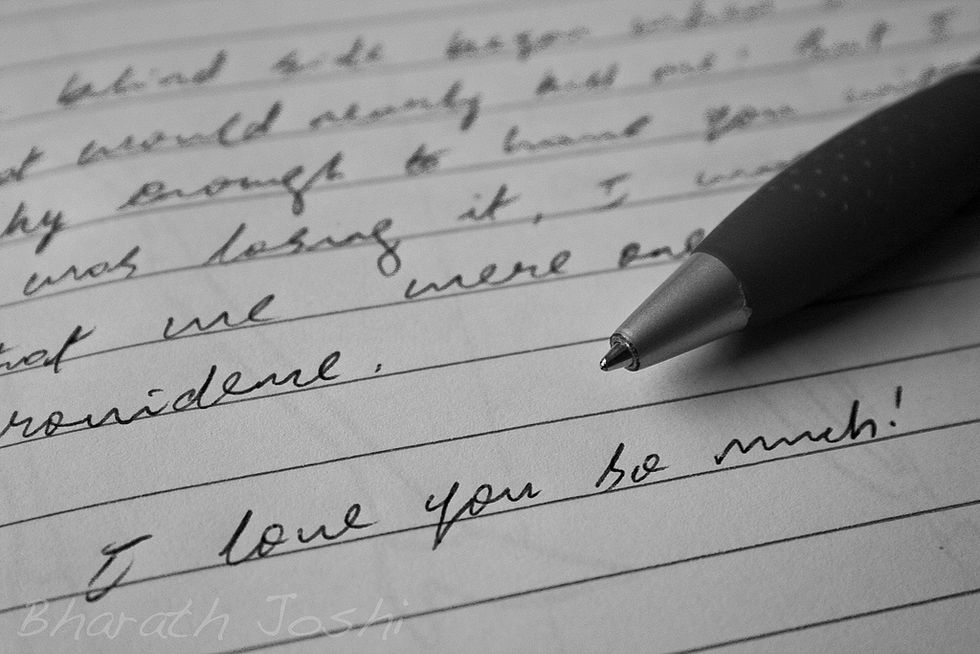 behind side began when
would nearly kill me. But I
enough to have you with
was losing it, I was
we were one
providence.
I love you so much!
Bharath Joshi